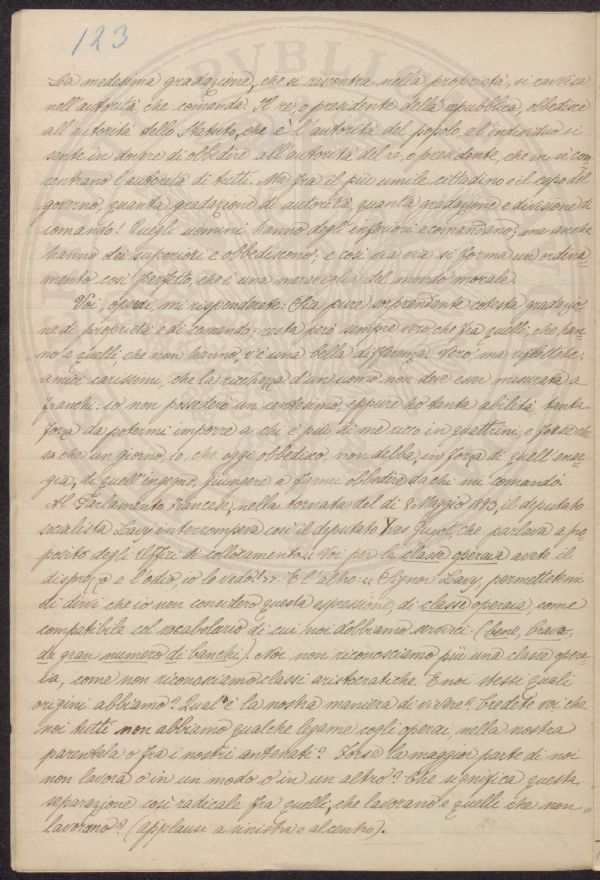 123
La medesima gradazione, che si riscontra nella proprietà, si ravvisa
nell'autorità che comanda. Il re, o presidente della repubblica, obbedisce
all'autorità dello Statuto, che è l'autorità del popolo, e l'individuo si
sente in dovere di obbedire all'autorità del re, o presidente, che in sè con
centrano l'autorità di tutti. Ma fra il più umile cittadino e il capo del
governo, quanta gradazione di autorità, quanta gradazione e divisione di
comando! Quegli uomini hanno degl'inferiori e comandano; ma anche
hanno dei superiori e obbediscono; e così via via si forma un ordina=
mento così perfetto, che è una meraviglia del mondo morale.
Voi, operai, mi risponderete: Sia pure sorprendente cotesta gradazio=
ne di proprietà e di comando, resta però sempre vero che fra quelli, che han=
no e quelli che non hanno, v'è una bella differenza. Vero; ma riflettete,
amici carissimi, che la ricchezza d'un uomo non deve esser misurata a
franchi: io non possederò un centesimo, eppure ho tanta abilità, tanta
forza da potermi imporre a chi è più di me ricco in quattrini, e forse chi
sa che un giorno, io, che oggi obbedisco, non debba, in forza di quell'ener=
gia, di quell'ingegno, giungere a farmi obbedire da chi mi comandò.
Al Parlamento francese, nella tornata del dì 8 Maggio 1893, il deputato
socialista Lavy interrompeva così il deputato Yves Guyot, che parlava a pro
posito degli Uffizi di collocamento: "Voi per la classe operaia avete il
disprezzo e l'odio, io lo vedo!". E l'altro: "Signor Lavy, permettetemi
di dirvi che io non considero questa espressione, di classe operaia, come
compatibile col vocabolario di cui noi dobbiamo servirci. (bene, bravo,
da gran numero di banchi). Noi non riconosciamo più una classe opera=
ia, come non riconosciamo classi aristocratiche. E noi stessi quali
origini abbiamo? Qual'è la nostra maniera di vivere? Credete voi che
noi tutti non abbiamo qualche legame cogli operai, nella nostra
parentela o fra i nostri antenati? Forse la maggior parte di noi
non lavora o in un modo o in un altro? Che significa questa
separazione così radicale fra quelli, che lavorano e quelli che non
lavorano? (Applausi a sinistra e al centro).